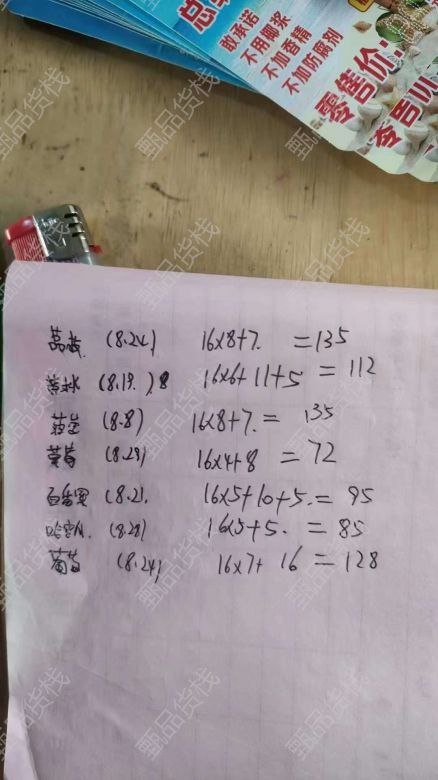 敢承诺
不用椰浆
不加香精
不加防腐剂
零售价:
零售以
(8.24) 16×8+7. =135
(8.19.) 8 16×6+11+5 = 112
菠萝 (8.8) 16×8+7. = 135
草莓 (8.29) 16×4+8 = 72
百香果 (8.21. 16×5+10+5. = 95
哈密瓜. (8.28) 16×5+5. = 85
葡萄 (8.24) 16×7+ 16 = 128
甄品货栈